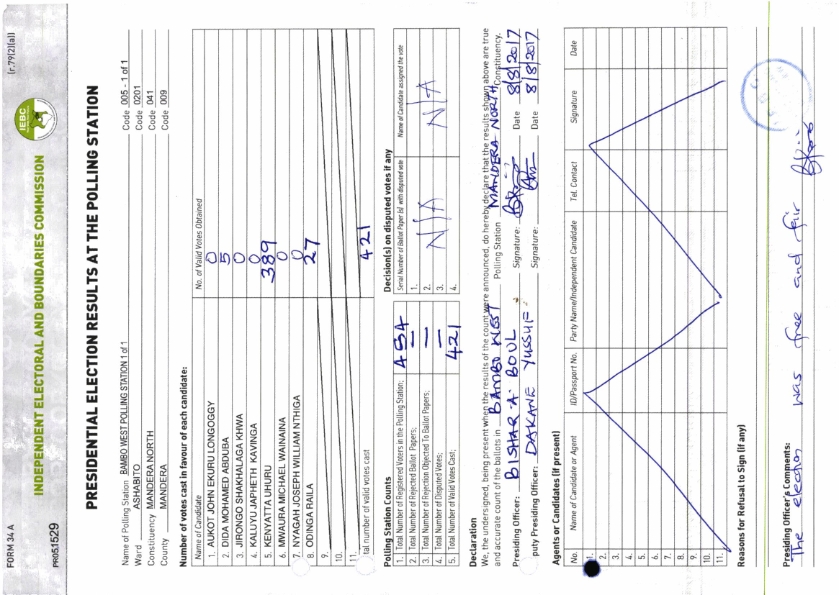 FORM 34 A (r.79(2)(a))
IEBC
INDEPENDENT ELECTORAL AND BOUNDARIES COMMISSION
PR051529
PRESIDENTIAL ELECTION RESULTS AT THE POLLING STATION
Name of Polling Station BAMBO WEST POLLING STATION 1 of 1 Code 005 - 1 of 1
Ward ASHABITO Code 0201
Constituency MANDERA NORTH Code 041
County MANDERA Code 009
Number of votes cast in favour of each candidate:
Name of Candidate No. of Valid Votes Obtained
1. AUKOT JOHN EKURU LONGOGGY 0
2. DIDA MOHAMED ABDUBA 5
3. JIRONGO SHAKHALAGA KHWA 0
4. KALUYU JAPHETH KAVINGA 0
5. KENYATTA UHURU 389
6. MWAURA MICHAEL WAINAINA 0
7. NYAGAH JOSEPH WILLIAM NTHIGA 0
8. ODINGA RAILA 27
9.
10.
11.
tal number of valid votes cast 421
Polling Station Counts
1. Total Number of Registered Voters in the Polling Station;
2. Total Number of Rejected Ballot Papers; —
3. Total Number of Rejection Objected To Ballot Papers; —
4. Total Number of Disputed Votes; —
5. Total Number of Valid Votes Cast; 421
Decision(s) on disputed votes if any
Serial Number of Ballot Paper (s) with disputed vote Name of Candidate assigned the vote
1.
2. N/A N/A
3.
4.
Declaration
We, the undersigned, being present when the results of the count were announced, do hereby declare that the results shown above are true
and accurate count of the ballots in BAMBO WEST Polling Station MANDERA NORTH Constituency.
Presiding Officer: BISHAR A. BOUL Signature: Date 8/8/2017
puty Presiding Officer: DAKANE YUSSUF Signature: Date 8/8/2017
Agents or Candidates (if present)
No. Name of Candidate or Agent ID/Passport No. Party Name/Independent Candidate Tel. Contact Signature Date
1.
2.
3.
4.
5.
6.
7.
8.
9.
10.
11.
Reasons for Refusal to Sign (if any)
Presiding Officer's Comments:
The election was free and fair